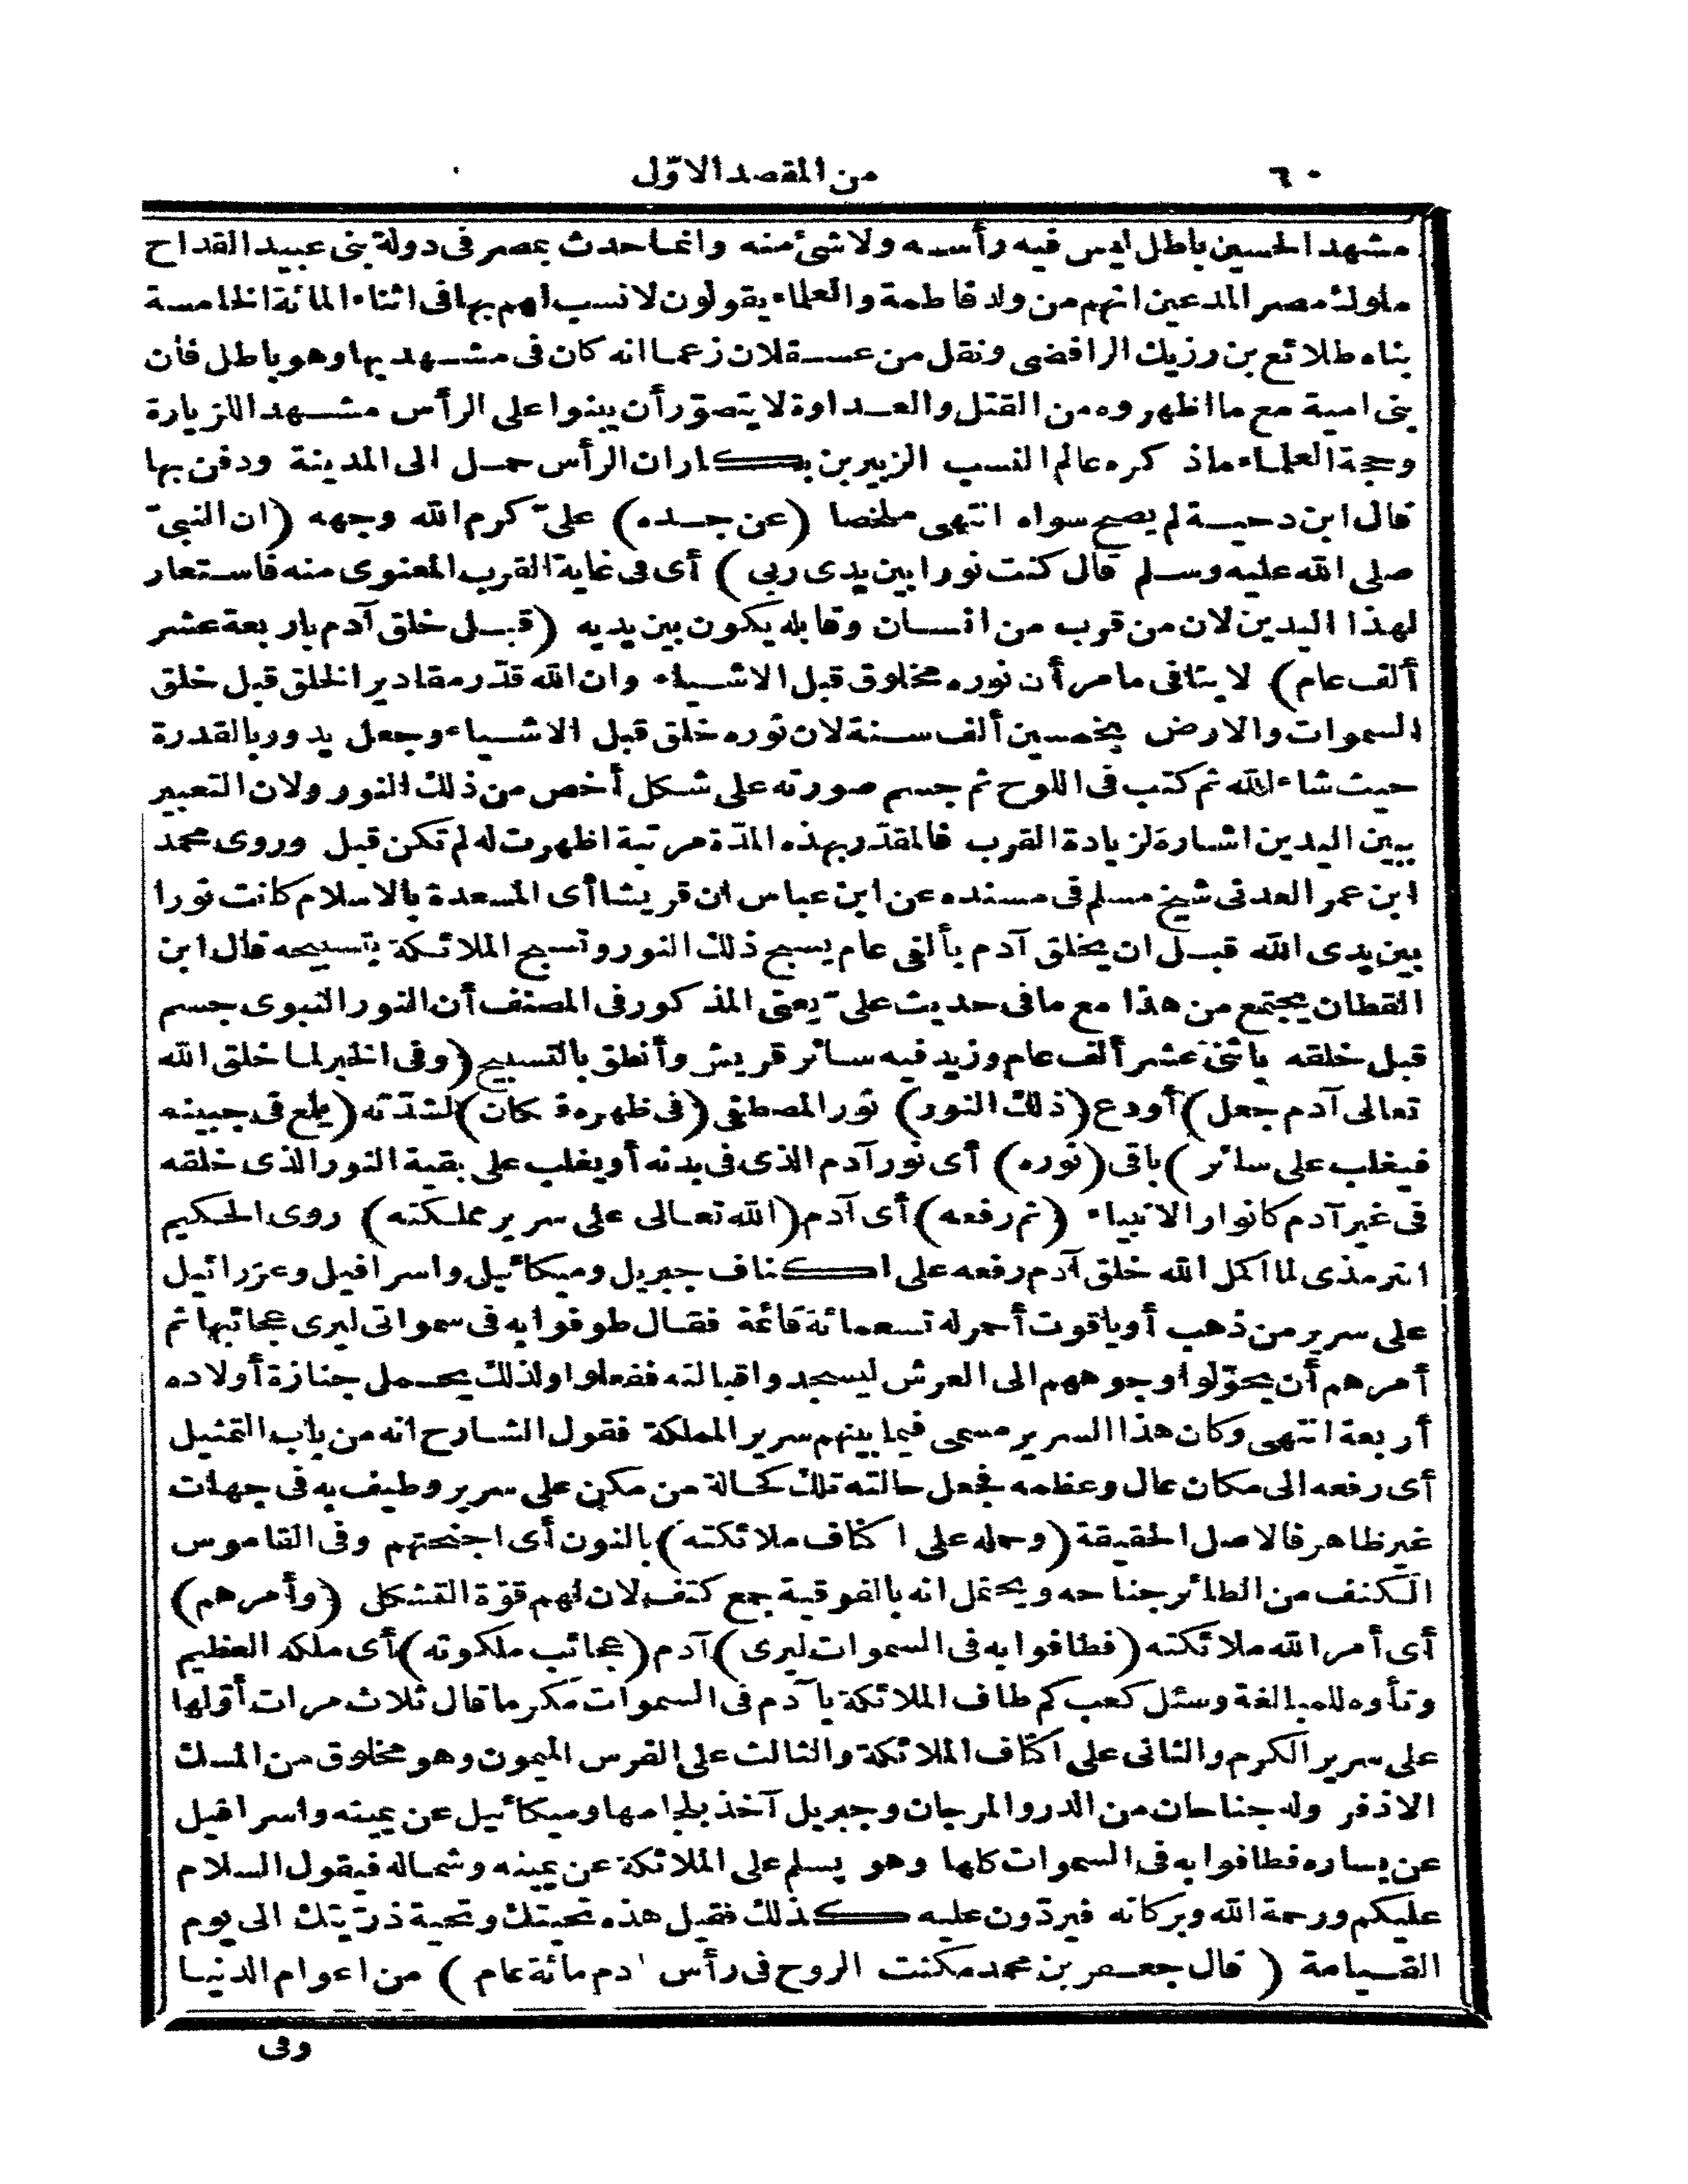 ٦٠
من المقصد الاوّل
مشهد الحسين باطل ليس فيه رأسه ولاشئ منه وانما حدث بمصر فى دولة بنى عبيد القداح
ملوك مصر المدعين انهم من ولد فاطمة والعلماء يقولون لانسب لهم بها فى اثناء المائة الخامسة
بناه طلائع بن رزيك الرافضى ونقل من عسقلان زعما انه كان فى مشهد بها وهو باطل فان
بنى امية مع ما اظهروه من القتل والعداوة لا يتصوّر أن يبنوا على الرأس مشهدا للزيارة
وحجة العلماء ماذكره عالم النسب الزبير بن بكار ان الرأس حمل الى المدينة ودفن بها
قال ابن دحية لم يصح سواه انتهى ملخصا (عن جده) علىّ كرم الله وجهه (ان النبىّ
صلى الله عليه وسلم قال كنت نورا بين يدى ربى) أى فى غاية القرب المعنوى منه فاستعار
لهذا اليدين لان من قرب من انسان وقابله يكون بين يديه (قبل خلق آدم باربعة عشر
ألف عام) لا ينافى ما مر أن نوره مخلوق قبل الاشياء وان الله قدّر مقادير الخلق قبل خلق
السموات والارض بخمسين ألف سنة لان نوره خلق قبل الاشياء وجعل يدور بالقدرة
حيث شاء الله ثم كتب فى اللوح ثم جسم صورته على شكل أخص من ذلك النور ولان التعبير
ببين اليدين اشارة لزيادة القرب فالمقدّر بهذه المدّة مرتبة اظهرت له لم تكن قبل وروى محمد
ابن عمر العدنى شيخ مسلم فى مسنده عن ابن عباس ان قريشا أى المسعدة بالاسلام كانت نورا
بين يدى الله قبل ان يخلق آدم بألفى عام يسبح ذلك النور وتسبح الملائكة بتسبيحه قال ابن
القطان يجتمع من هذا مع ما فى حديث علىّ يعنى المذكور فى المصنف أن النور النبوى جسم
قبل خلقه باثنى عشر ألف عام وزيد فيه سائر قريش وأنطق بالتسبيح (وفى الخبر لما خلق الله
تعالى آدم جعل) أودع (ذلك النور) نور المصطفى (فى ظهره فكان) لشدّته (يلمع فى جبينه
فيغلب على سائر) باقى (نوره) أى نور آدم الذى فى بدنه أو يغلب على بقية النور الذى خلقه
فى غير آدم كانوار الانبياء (ثم رفعه) أى آدم (الله تعالى على سرير مملكته) روى الحكيم
الترمذى لما اكمل الله خلق آدم رفعه على اكناف جبريل وميكائيل واسرافيل وعزرائيل
على سرير من ذهب أوياقوت أحمر له تسعمائة قائمة فقال طوفوا به فى سمواتى ليرى عجائبها ثم
أمرهم أن يحوّلوا وجوههم الى العرش ليسجدوا قبالته ففعلوا ولذلك يحمل جنازة أولاده
أربعة انتهى وكان هذا السرير مسمى فيما بينهم سرير المملكة فقول الشارح انه من باب التمثيل
أى رفعه الى مكان عال وعظمه فجعل حالته تلك كحالة من مكن على سرير وطيف به فى جهات
غير ظاهر فالاصل الحقيقة (وحمله على اكناف ملائكته) بالنون أى اجنحتهم وفى القاموس
الكنف من الطائر جناحه ويحتمل انه بالفوقية جمع كتف لان لهم قوّة التشكل (وأمرهم)
أى أمر الله ملائكته (فطافوا به فى السموات ليرى) آدم (عجائب ملكوته) أى ملكه العظيم
وتاؤه للمبالغة وسئل كعب كم طاف الملائكة بآدم فى السموات مكرما قال ثلاث مرات أوّلها
على سرير الكرم والثانى على اكتاف الملائكة والثالث على الفرس الميمون وهو مخلوق من المسك
الاذفر وله جناحان من الدر والمرجان وجبريل آخذ بلجامها وميكائيل عن يمينه واسرافيل
عن يساره فطافوا به فى السموات كلها وهو يسلم على الملائكة عن يمينه وشماله فيقول السلام
عليكم ورحمة الله وبركاته فيردّون عليه كذلك فقيل هذه تحيتك وتحية ذرّيتك الى يوم
القيامة (قال جعفر بن محمد مكثت الروح فى رأس آدم مائة عام) من اعوام الدنيا
وفى